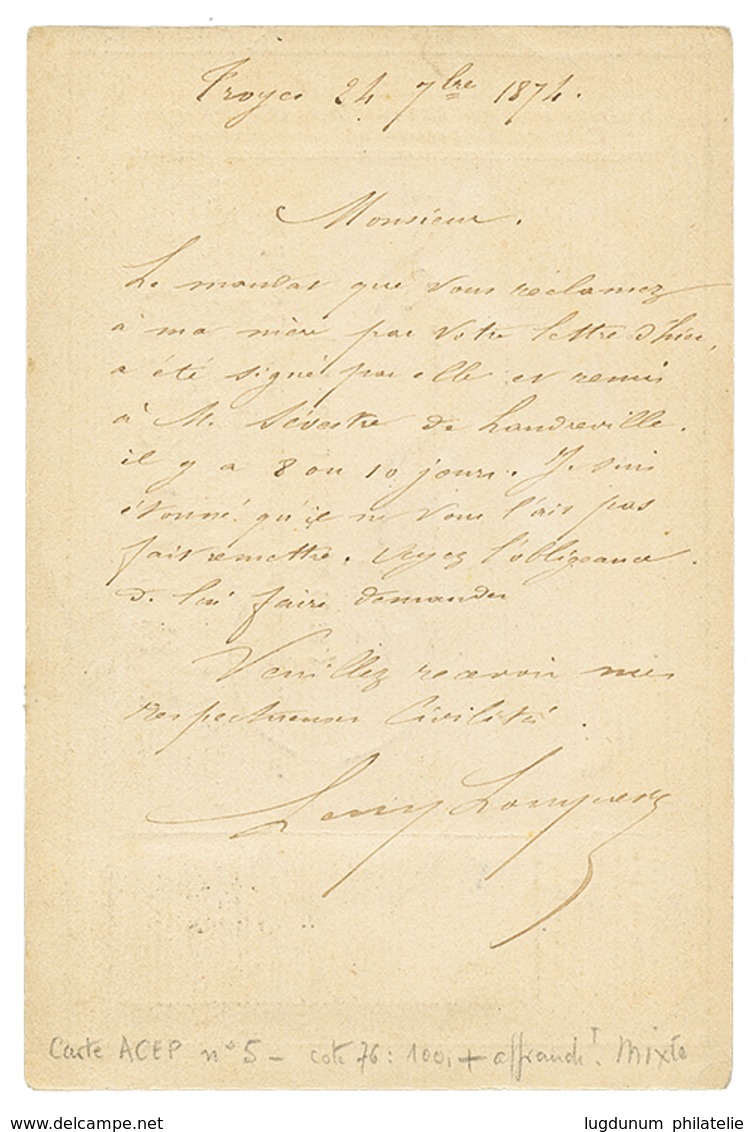 Troyes 24 7bre 1874.
Monsieur.
Le mandat que vous réclamez
à ma mère par votre lettre d'hier,
a été signé par elle et remis
à M. Sévestre de Landreville.
il y a 8 ou 10 jours. Je suis
étonné qu'il ne vous l'ait pas
fait remettre. Ayez l'obligeance
de lui faire demander
Veuillez recevoir mes
respectueuses civilités.
Carte ACEP n° 5 - cote 76: 100, + affrancht. Mixte
www.delcampe.net
lugdunum philatelie